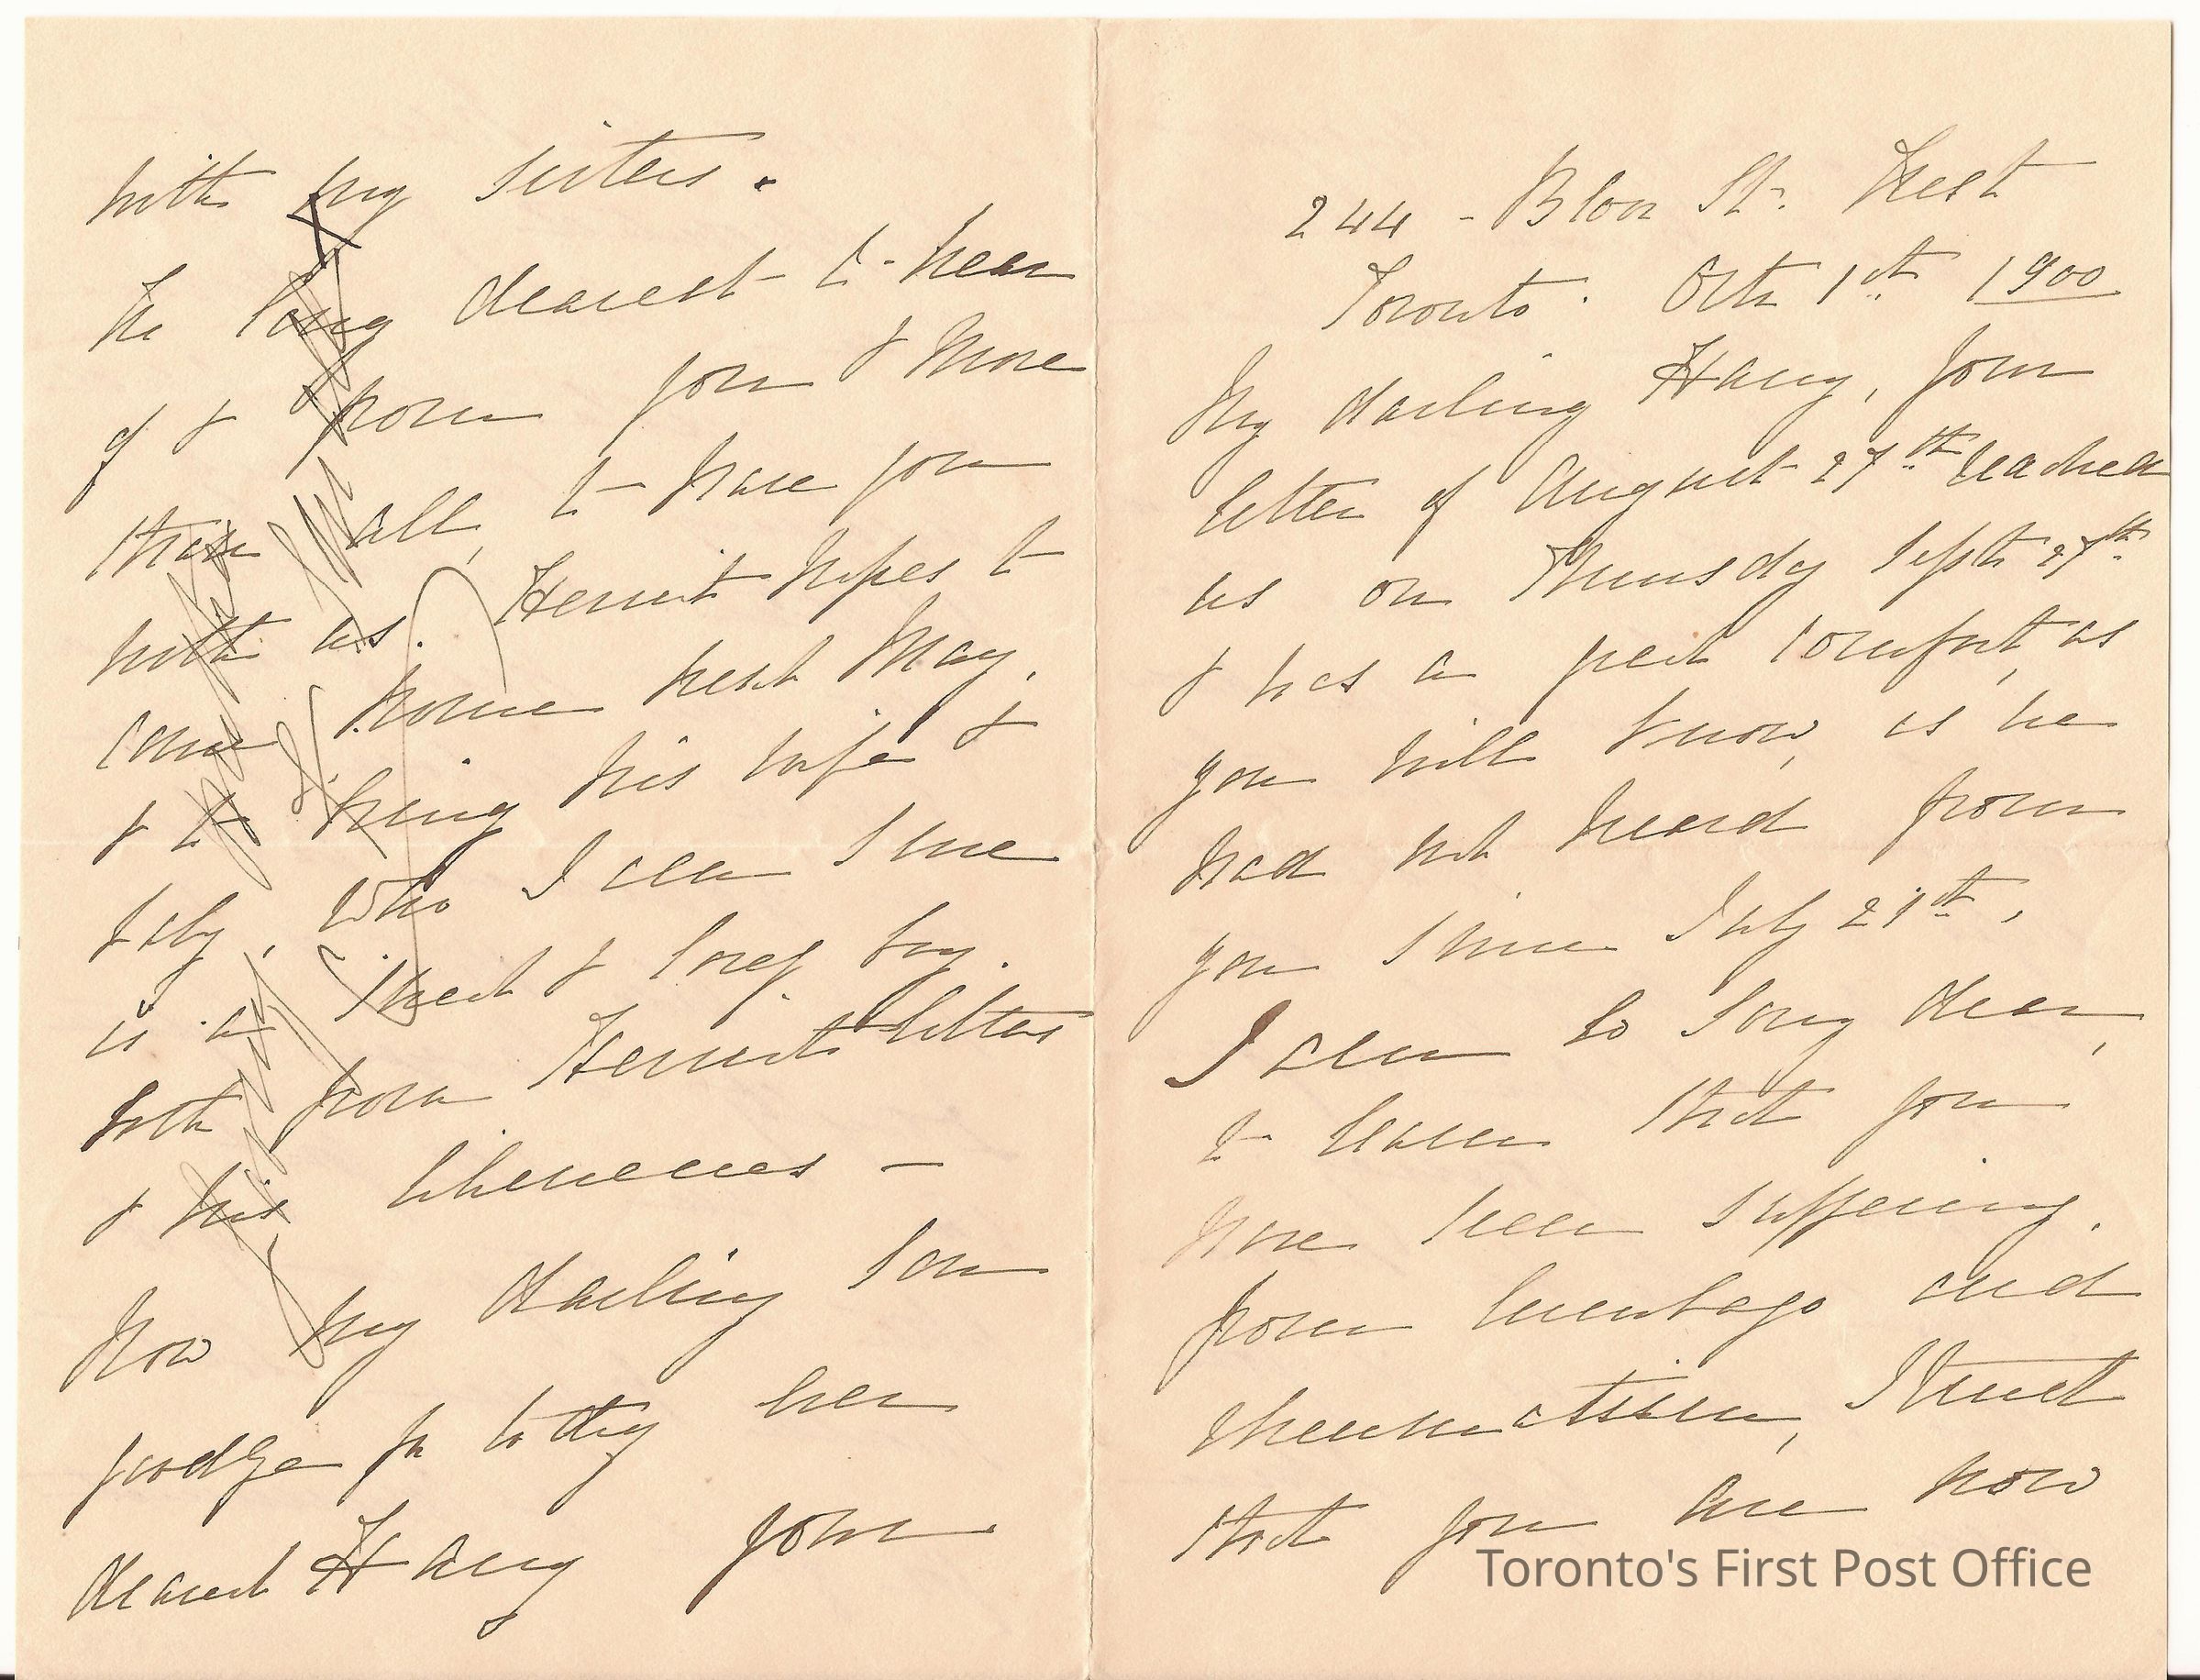 244 - Bloor St. West
Toronto. Octr 1st 1900
My darling Harry, your
letter of August 27th reached
us on Thursdy Septr 27th
& was a great comfort, as
you will know, as we
had not heard from
you since July 21st,
I am so sorry dear,
to learn that you
have been suffering.
from lumbago and
rheumatism, I trust
that you are now
with my sisters.
We long dearest to hear
of & from you & more
than all, to have you
with us. hopes to
come home next May,
& to bring his wife &
baby, who I am sure
is a sweet & lovely boy.
both from letters
& his likenesses -
Now my darling son
goodbye for to day
dearest Harry your
Toronto's First Post Office